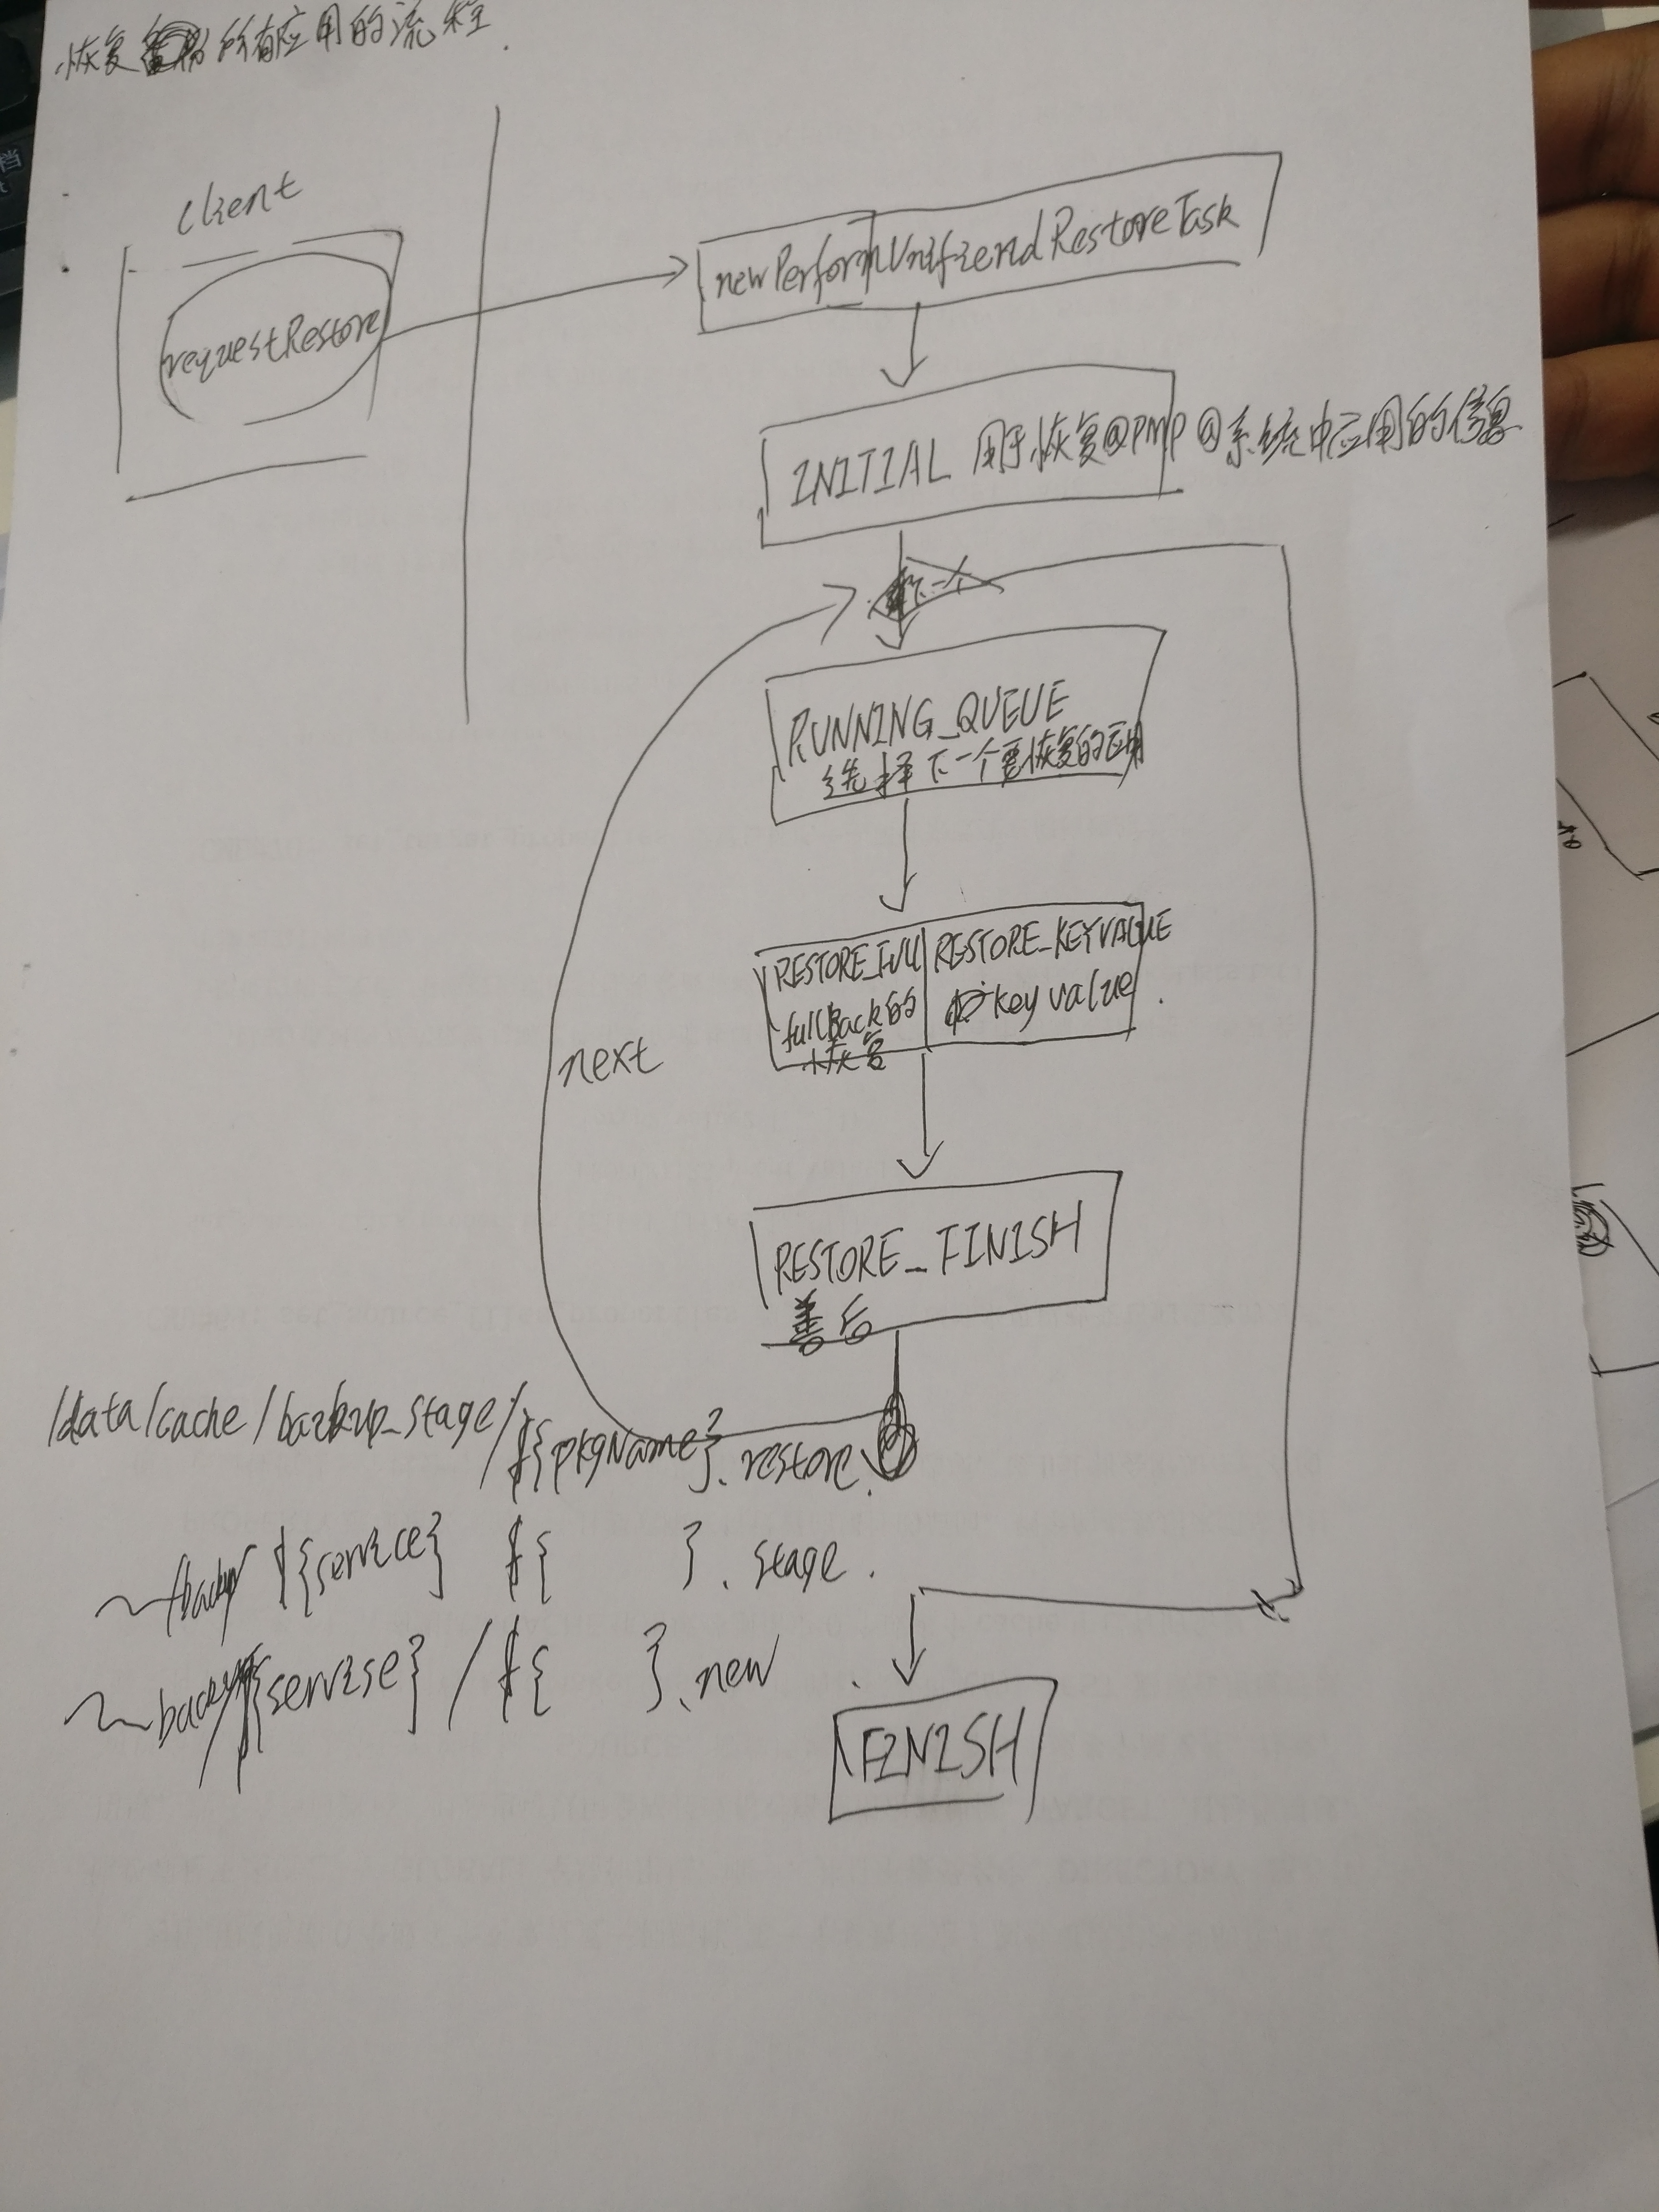 恢复所有应用的流程.
client
requestRestore
newPerformUnifiendRestoreTask
INITIAL 用于恢复@PMP@系统中应用的信息
下一个
RUNNING_QUEUE
选择下一个要恢复的应用
RESTORE_FULL
fullBack的
恢复
RESTORE_KEYVALUE
keyvalue.
next
RESTORE_FINISH
善后
/data/cache/backup_stage/
/${pkgName}.restore.
backup ${service} ${ }.stage.
backup ${servise}/${ }.new
FINISH